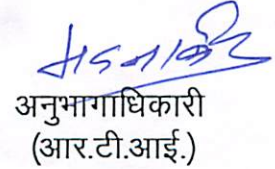 अनुभागाधिकारी
(आर.टी.आई.)